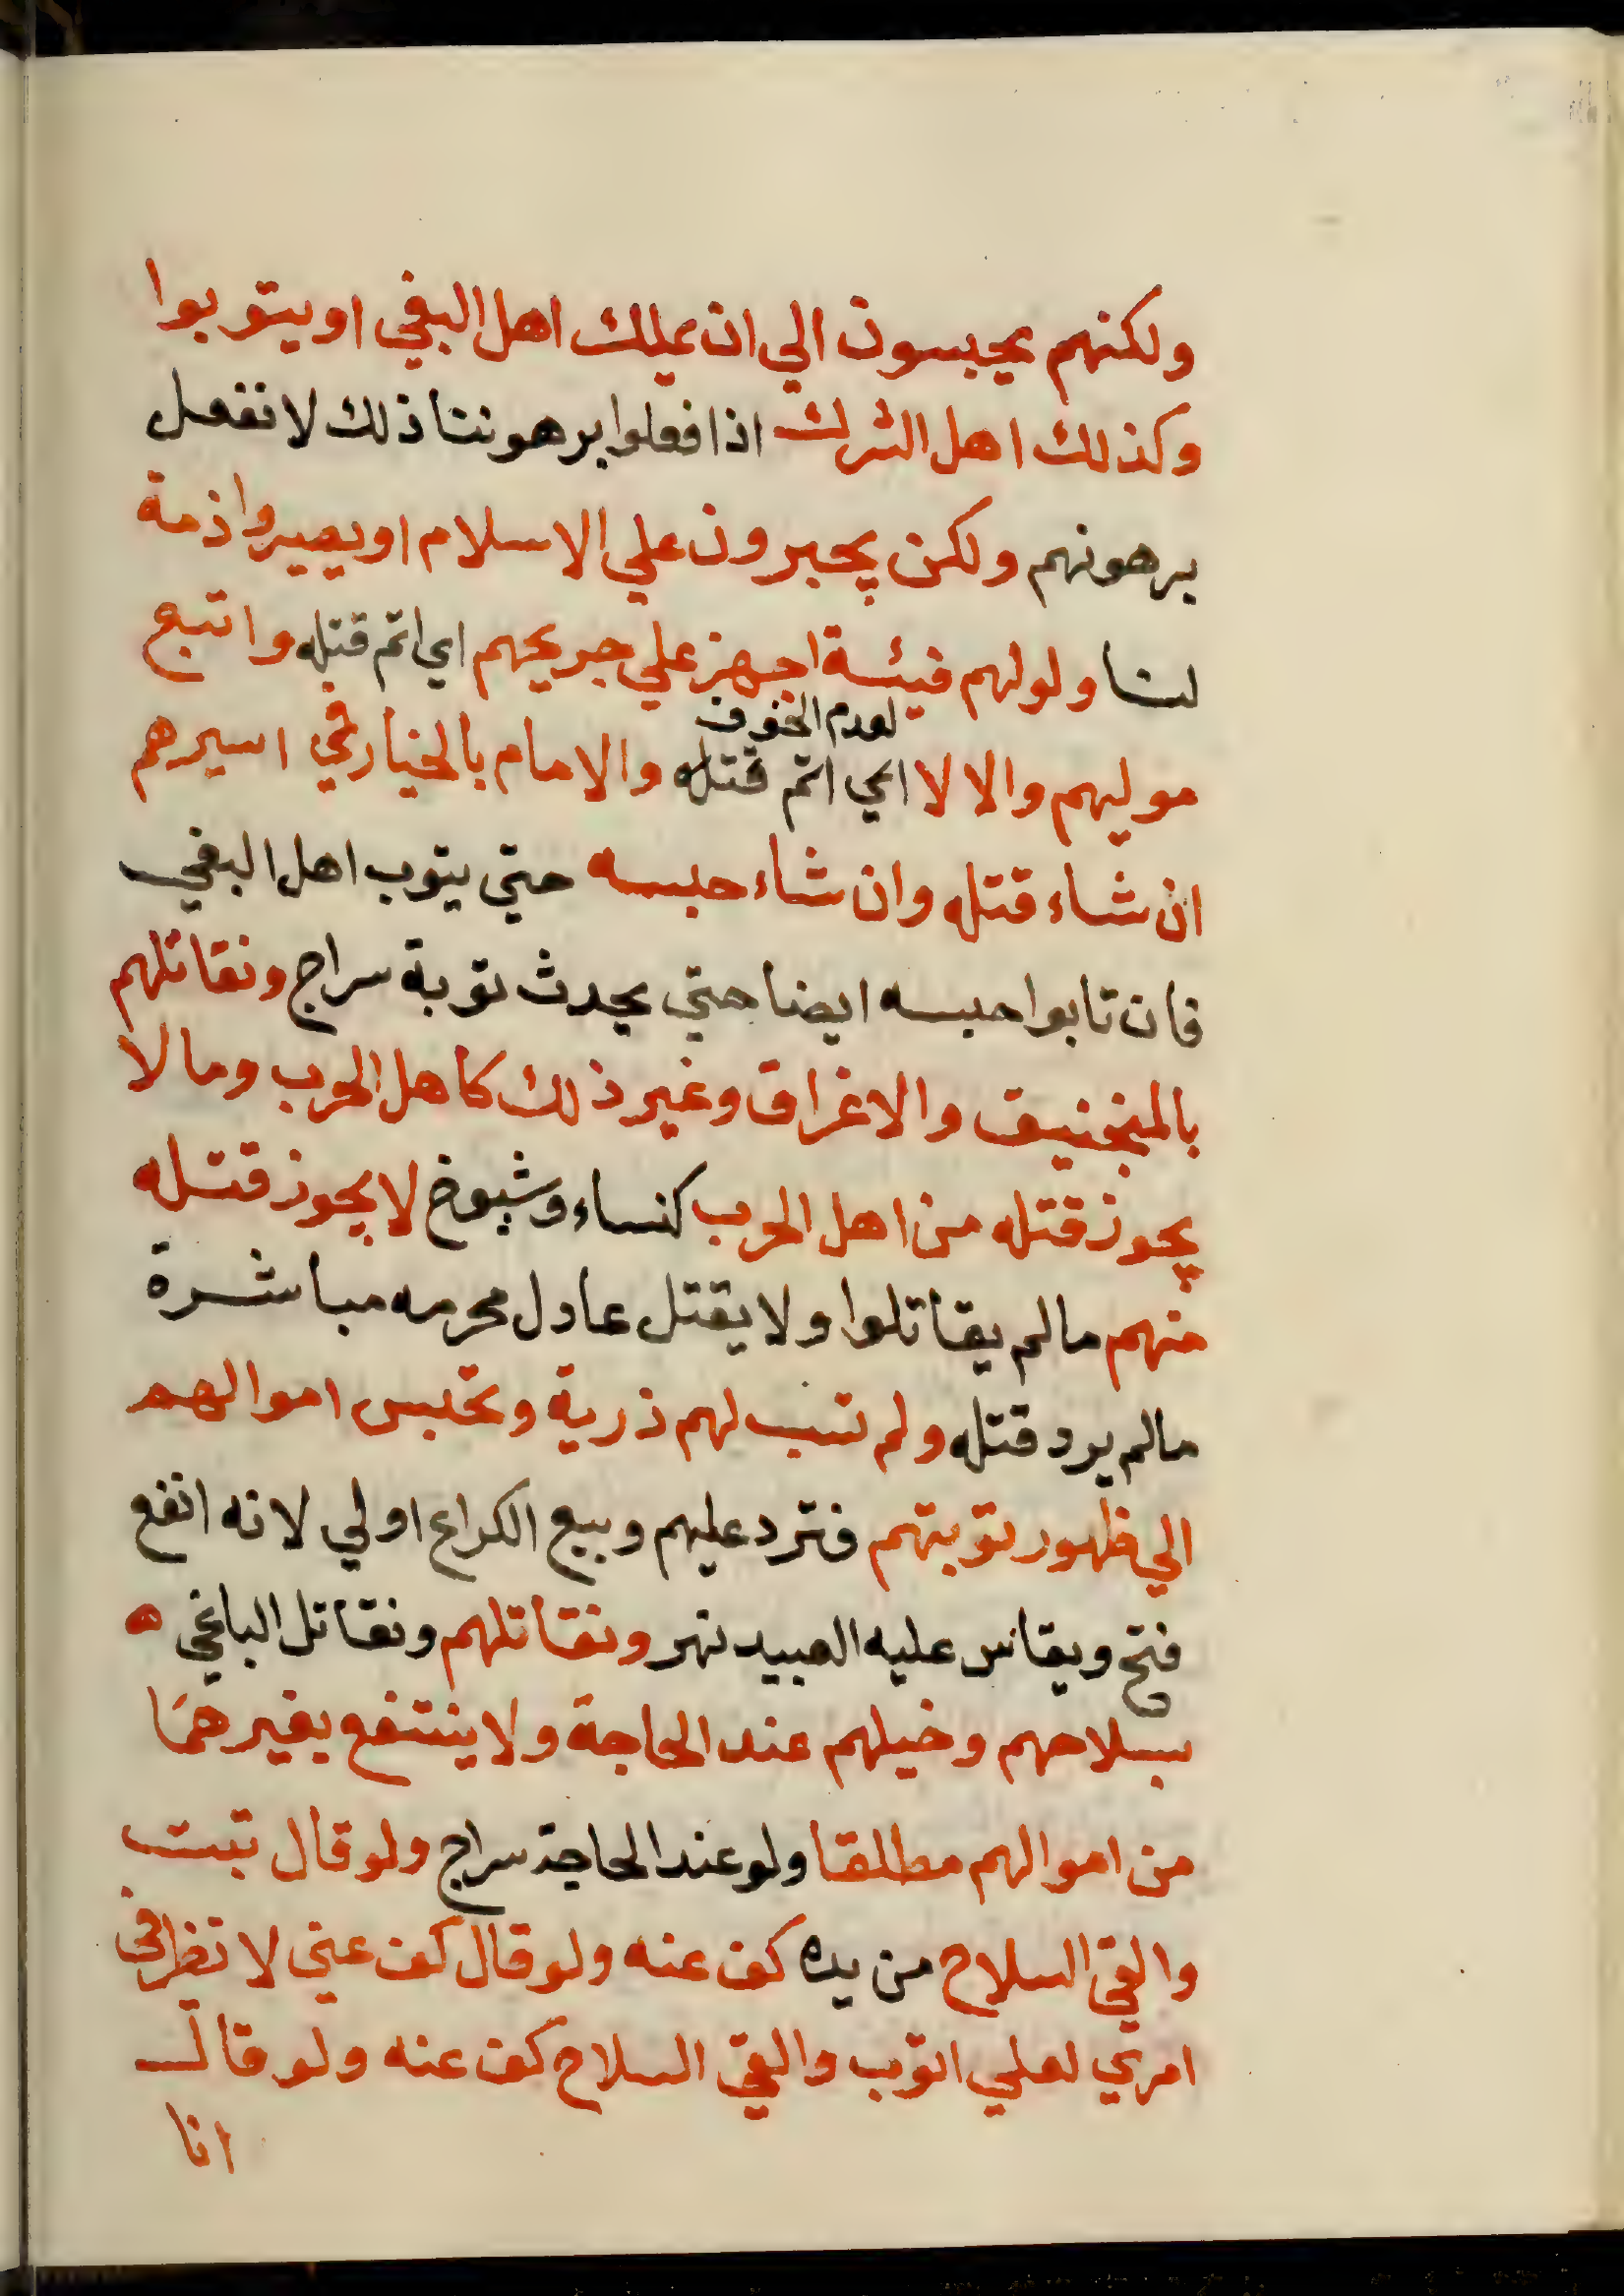 ولكنهم يحبسون الي ان يملك اهل البغي او يتوبوا
وكذلك اهل الشرك اذا فعلوا برهوننا ذلك لا نفعل
برهونهم ولكن يجبرون علي الاسلام او يصيروا ذمة
لنا ولو لهم فيئة اجهز علي جريحهم اي اتم قتله واتبع
لعدم الخوف
موليهم والا لا اي اتم قتله والامام بالخيار في اسيرهم
ان شاء قتله وان شاء حبسه حتي يتوب اهل البغي
فان تابوا حبسه ايضا حتي يحدث توبة سراج ونقاتلهم
بالمنجنيق والاغراق وغير ذلك كاهل الحرب وما لا
يجوز قتله من اهل الحرب كنساء وشيوخ لا يجوز قتله
منهم مالم يقاتلوا ولا يقتل عادل محرمه مباشرة
مالم يرد قتله ولم تسب لهم ذرية وتحبس اموالهم
الي ظهور توبتهم فترد عليهم وبيع الكراع اولي لانه انفع
فتح ويقاس عليه العبيد نهر ونقاتلهم ونقاتل الباغي ه
بسلاحهم وخيلهم عند الحاجة ولا ينتفع بغيرهما
من اموالهم مطلقا ولو عند الحاجة سراج ولو قال تبت
والقي السلاح من يده كف عنه ولو قال كف عني لا نظر في
امري لعلي اتوب والقي السلاح كف عنه ولو قال
انا